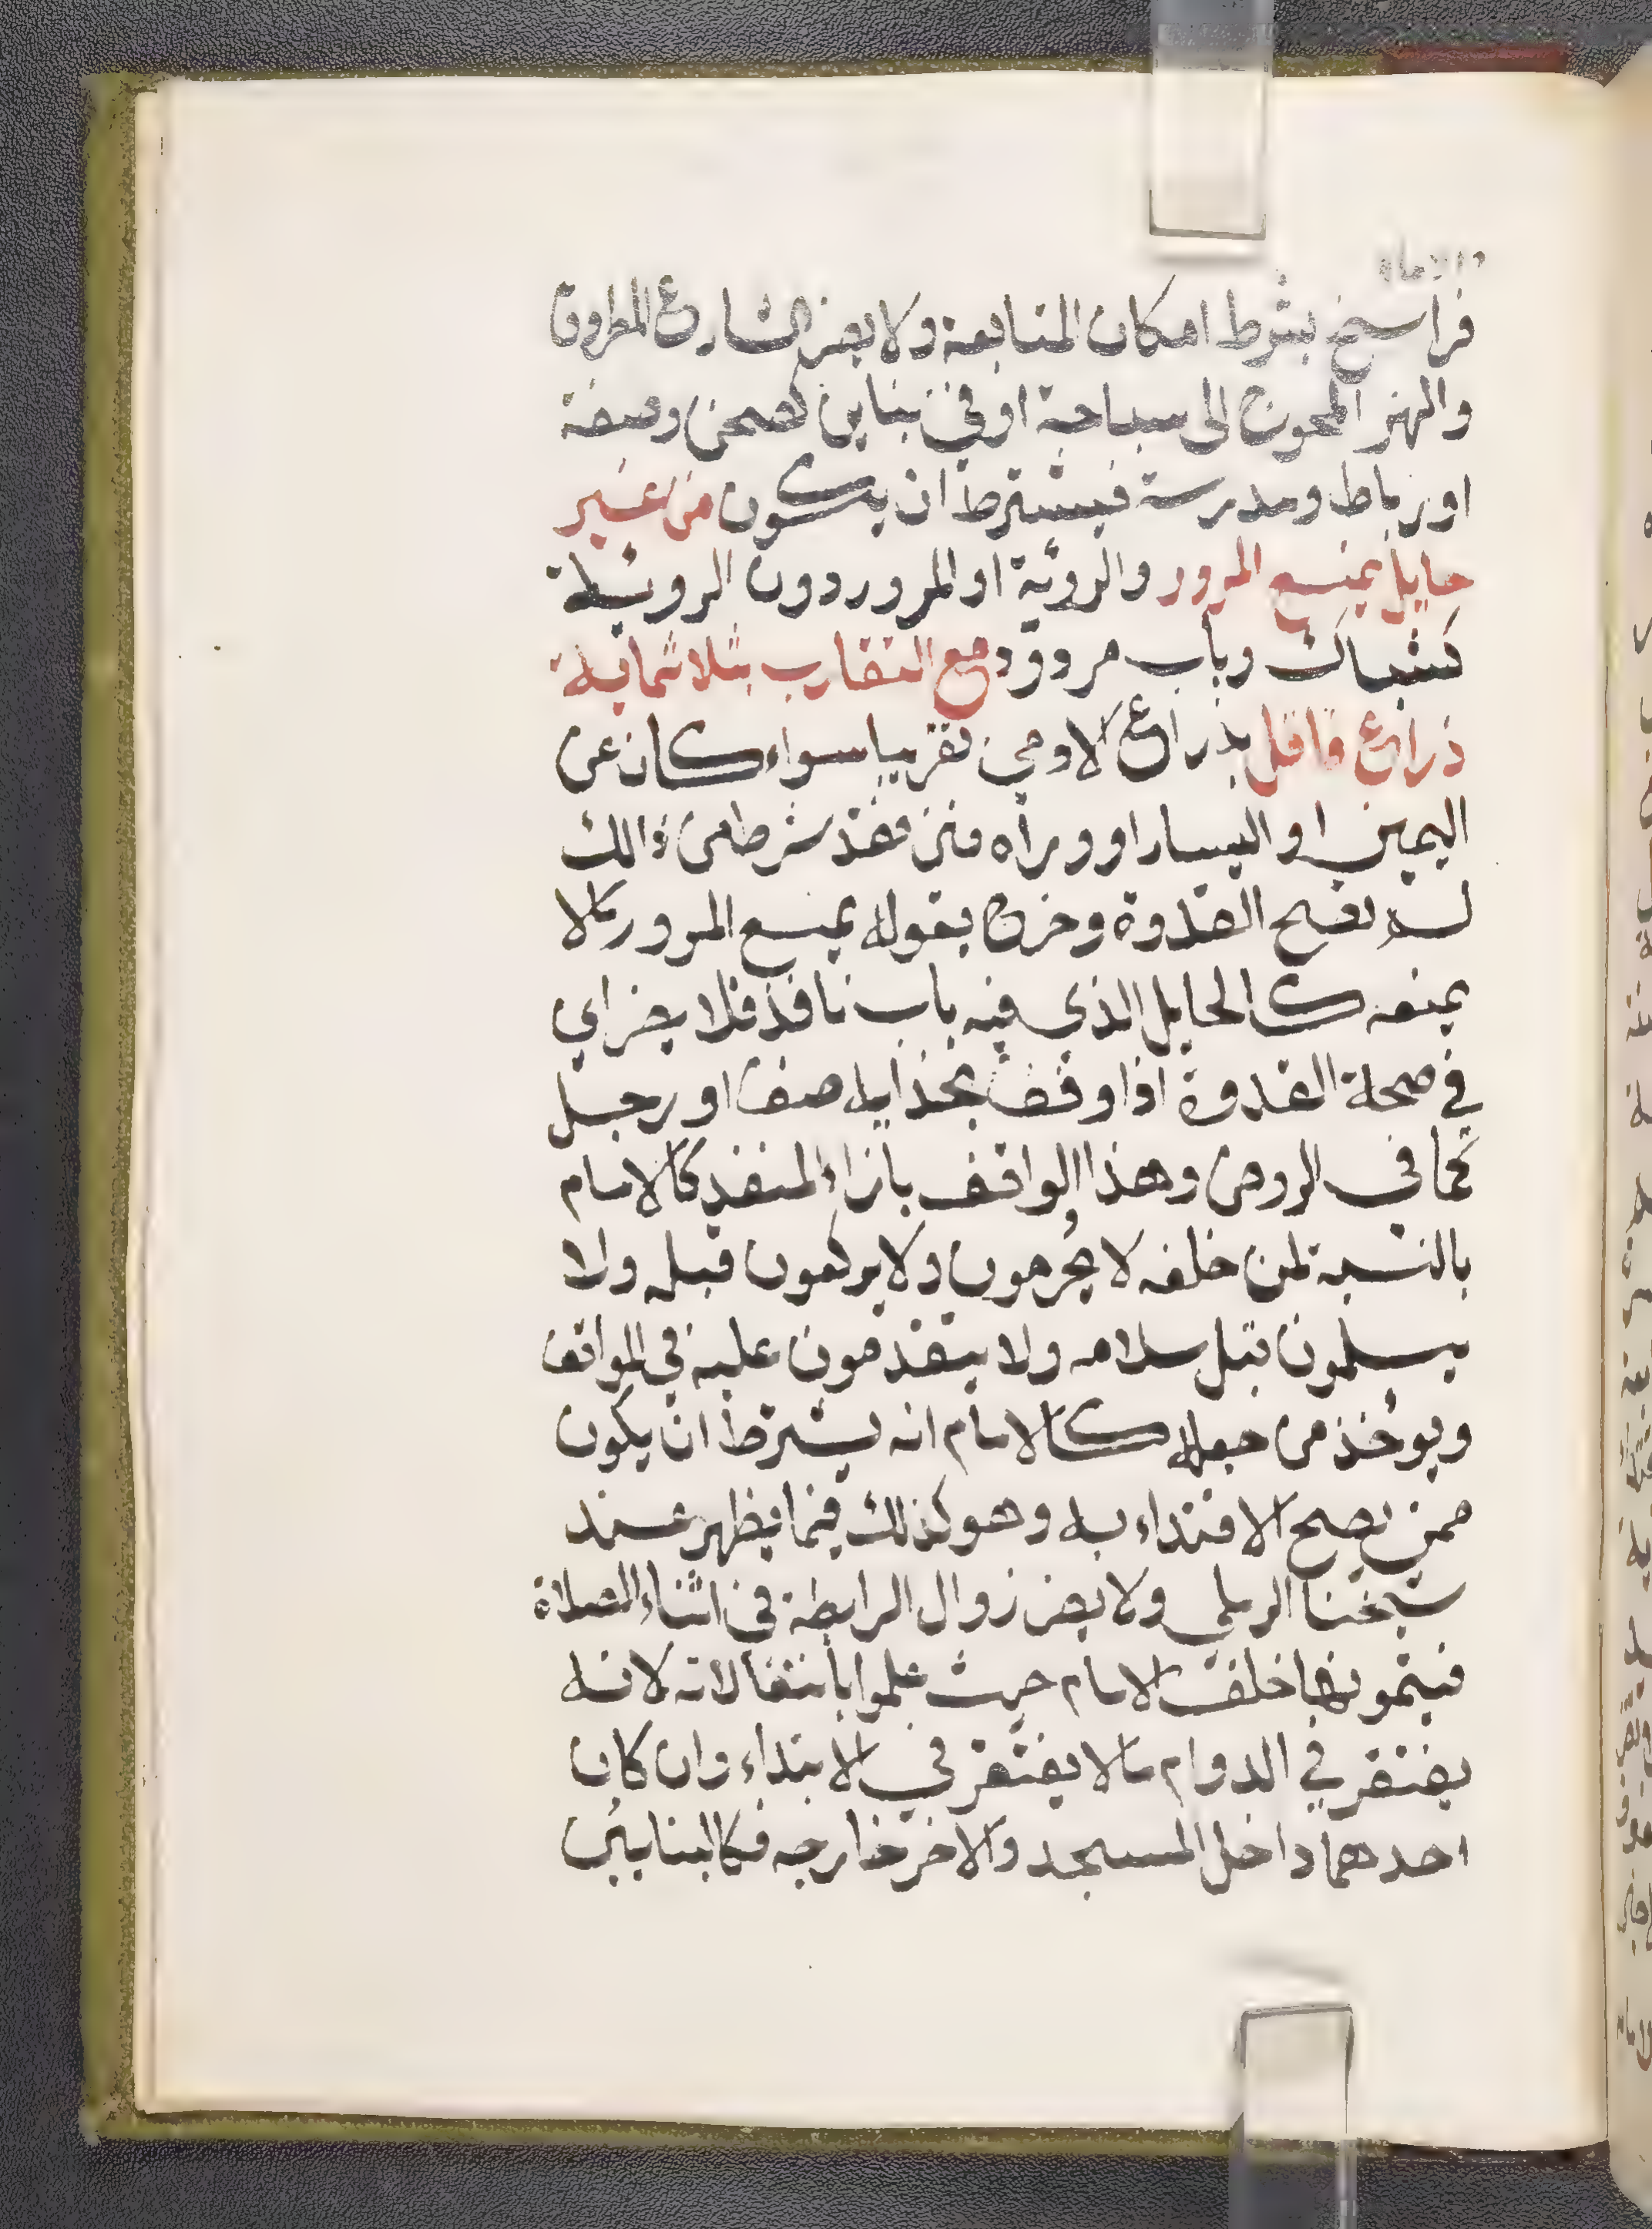 فراسخ بشرط امكان المتابعة ولا يضر الشارع المطروق
والنهر المحوج الى سباحة او في بناين كصحن وصفة
او رباط ومدرسة فيشترط ان يكون من غير
حايل يمنع المرور والروية او المرور دون الروية
كشباك وباب مردود مع التقارب بثلاثماية
ذراع فاقل بذراع الادمي تقريبا سواء كان عن
اليمين او اليسار او وراه فمن فقد شرط من ذالك
لم تصح القدوة وخرج بقوله يمنع المرور مالا
يمنعه كالحايل الذي فيه باب نافذ فلا يضر اي
في صحة القدوة اذا وقف بحذايه صف او رجل
كما في الروض وهذا الواقف بازاء المنفذ كالامام
بالنسبة لمن خلفه لا يُحرمون ولا يركعون قبله ولا
يسلمون قبل سلامه ولا يتقدمون عليه في الموقف
ويوخذ من جعله كالامام انه يشترط ان يكون
ممن يصح الاقتداء به وهو كذلك فيما يظهر عند
شيخنا الرملي ولا يضر زوال الرابطة في اثناء الصلاة
فيتمونها خلف الامام حيث علموا بانتقالاته لانه
يغتفر في الدوام مالا يغتفر في الابتداء وان كان
احدهما داخل المسجد والاخر خارجه فكالبنايين